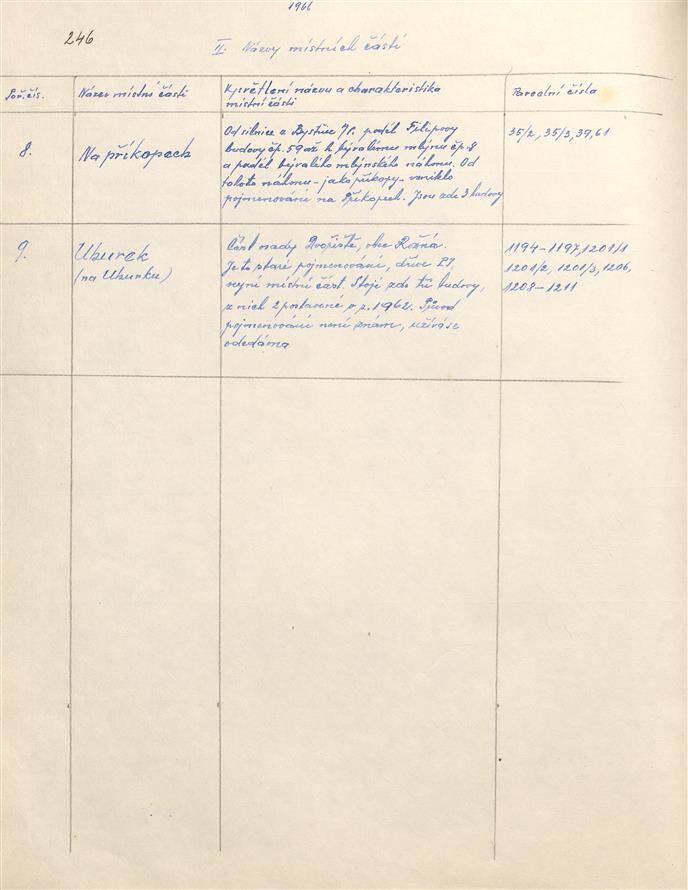 1966
246
II. Názvy místních částí
Poř. čís.
Název místní části
Vysvětlení názvu a charakteristika
místní části
Parcelní čísla
8.
Na příkopech
Od silnice z Bystřice n/P. podél Filipovy
budovy čp. 59 až k bývalému mlýnu čp. 8
a podél bývalého mlýnského náhonu. Od
tohoto náhonu - jako příkopy - vzniklo
pojmenování na Příkopech. Jsou zde 3 budovy
35/2, 35/3, 39, 61
9.
Uhurek
(na Uhurku)
Část osady Dvořiště, obce Rožná.
Je to staré pojmenování, dříve
nyní místní část. Stojí zde tři budovy,
z nich 2 postavené v r. 1962. Původ
pojmenování není znám, užívá se
odedávna
1194 - 1197, 1201/1
1201/2, 1201/3, 1206,
1208 - 1211